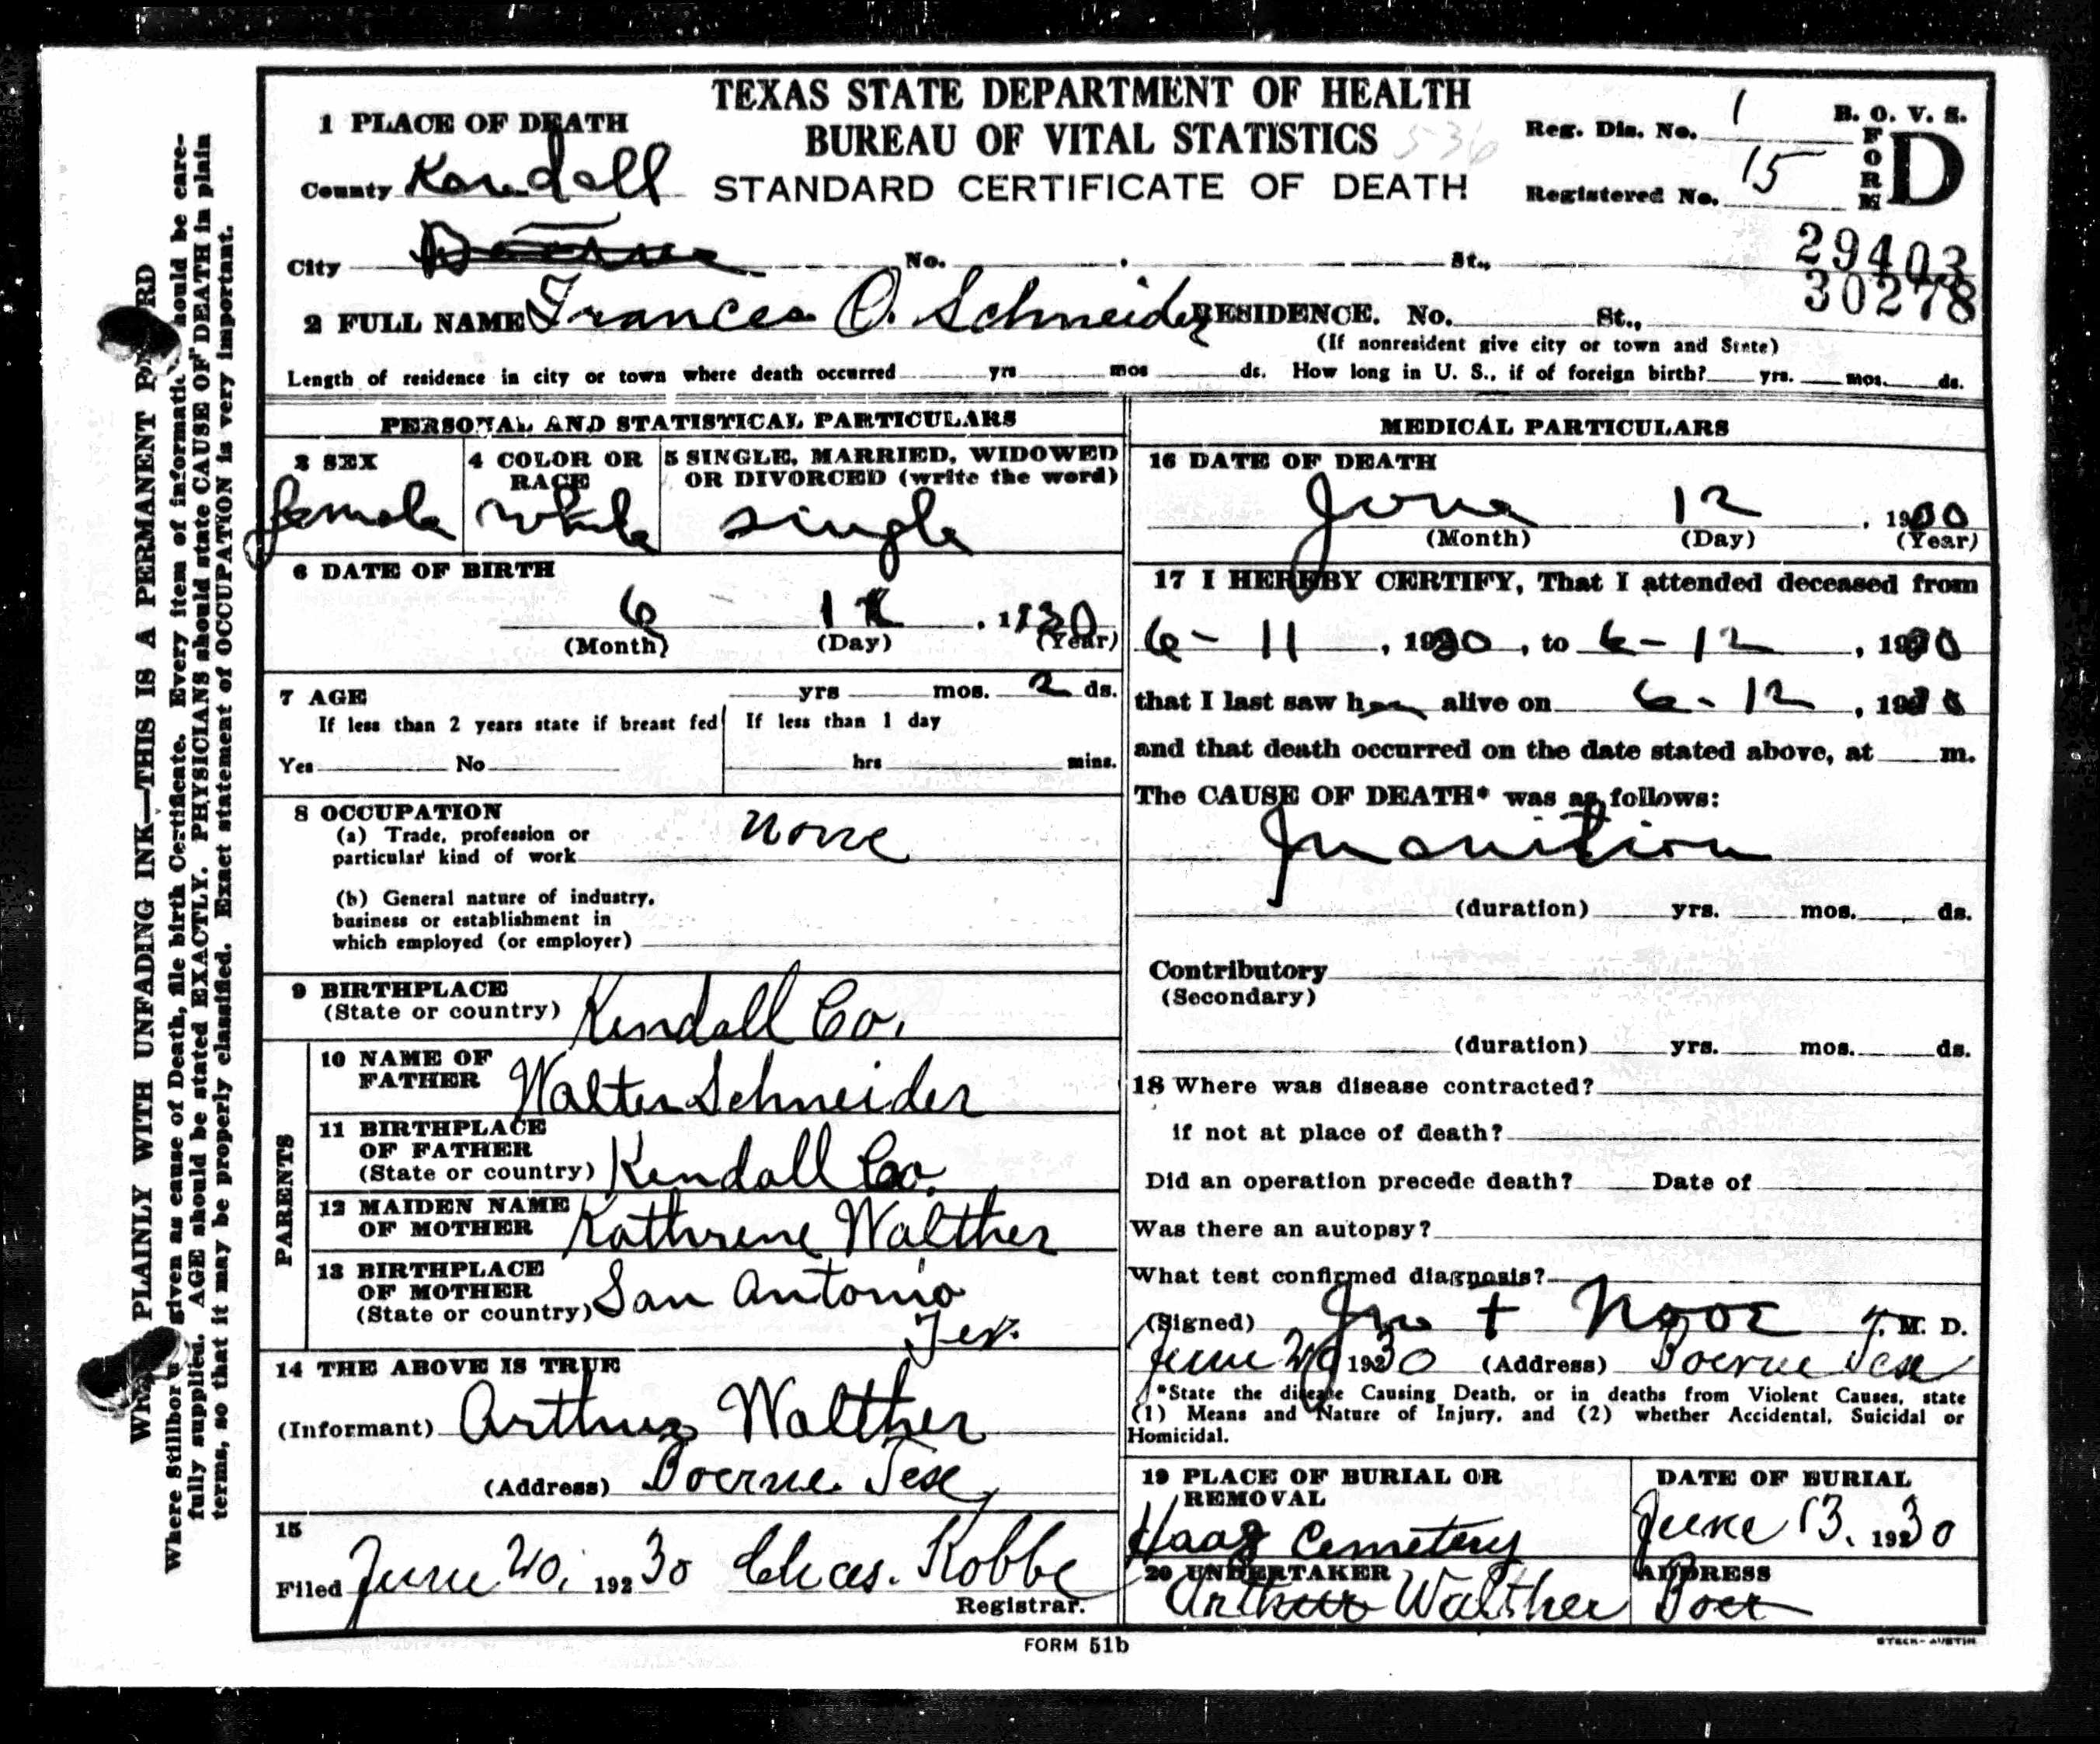 TEXAS STATE DEPARTMENT OF HEALTH
BUREAU OF VITAL STATISTICS 536
STANDARD CERTIFICATE OF DEATH
Reg. Dis. No. 1
Registered No. 15
B. O. V. S.
FORM D
29403
30278
1 PLACE OF DEATH
County Kendall
City Boerne No. St.,
2 FULL NAME Frances O. Schneider RESIDENCE. No. St.,
(If nonresident give city or town and State)
Length of residence in city or town where death occurred yrs mos ds. How long in U. S., if of foreign birth? yrs. mos. ds.
PERSONAL AND STATISTICAL PARTICULARS
3 SEX
female
4 COLOR OR RACE
white
5 SINGLE, MARRIED, WIDOWED
OR DIVORCED (write the word)
single
6 DATE OF BIRTH
6 , 1930
(Month) (Day) (Year)
7 AGE yrs mos. 2 ds.
If less than 2 years state if breast fed
Yes No
If less than 1 day
hrs mins.
8 OCCUPATION
(a) Trade, profession or
particular kind of work none
(b) General nature of industry,
business or establishment in
which employed (or employer)
9 BIRTHPLACE
(State or country) Kendall Co.
PARENTS
10 NAME OF
FATHER Walter Schneider
11 BIRTHPLACE
OF FATHER
(State or country) Kendall Co.
12 MAIDEN NAME
OF MOTHER Kathrene Walther
13 BIRTHPLACE
OF MOTHER
(State or country) San Antonio
Tex.
14 THE ABOVE IS TRUE
(Informant) Arthur Walther
(Address) Boerne Tex,
15
Filed June 20, 19230 Chas. Robbe
Registrar.
MEDICAL PARTICULARS
16 DATE OF DEATH
June 12 , 1930
(Month) (Day) (Year)
17 I HEREBY CERTIFY, That I attended deceased from
6-11 , 1930 , to 6-12 , 1930
that I last saw her alive on 6-12 , 1930
and that death occurred on the date stated above, at m.
The CAUSE OF DEATH* was as follows:
Inanition
(duration) yrs. mos. ds.
Contributory
(Secondary)
(duration) yrs. mos. ds.
18 Where was disease contracted?
if not at place of death?
Did an operation precede death? Date of
Was there an autopsy?
What test confirmed diagnosis?
(Signed) Jno Nooe M. D.
June 20 19230 (Address) Boerne Tex
*State the disease Causing Death, or in deaths from Violent Causes, state
(1) Means and Nature of Injury, and (2) whether Accidental, Suicidal or
Homicidal.
19 PLACE OF BURIAL OR
REMOVAL
Haag Cemetery
DATE OF BURIAL
June 13, 19230
20 UNDERTAKER
Arthur Walther
ADDRESS
Boer
FORM 51b
STECK-AUSTIN
PLAINLY WITH UNFADING INK—THIS IS A PERMANENT
Where Stillborn given as cause of Death, file birth Certificate. Every item of information should be care-
fully supplied. AGE should be stated EXACTLY. PHYSICIANS should state CAUSE OF DEATH in plain
terms, so that it may be properly classified. Exact statement of OCCUPATION is very important.